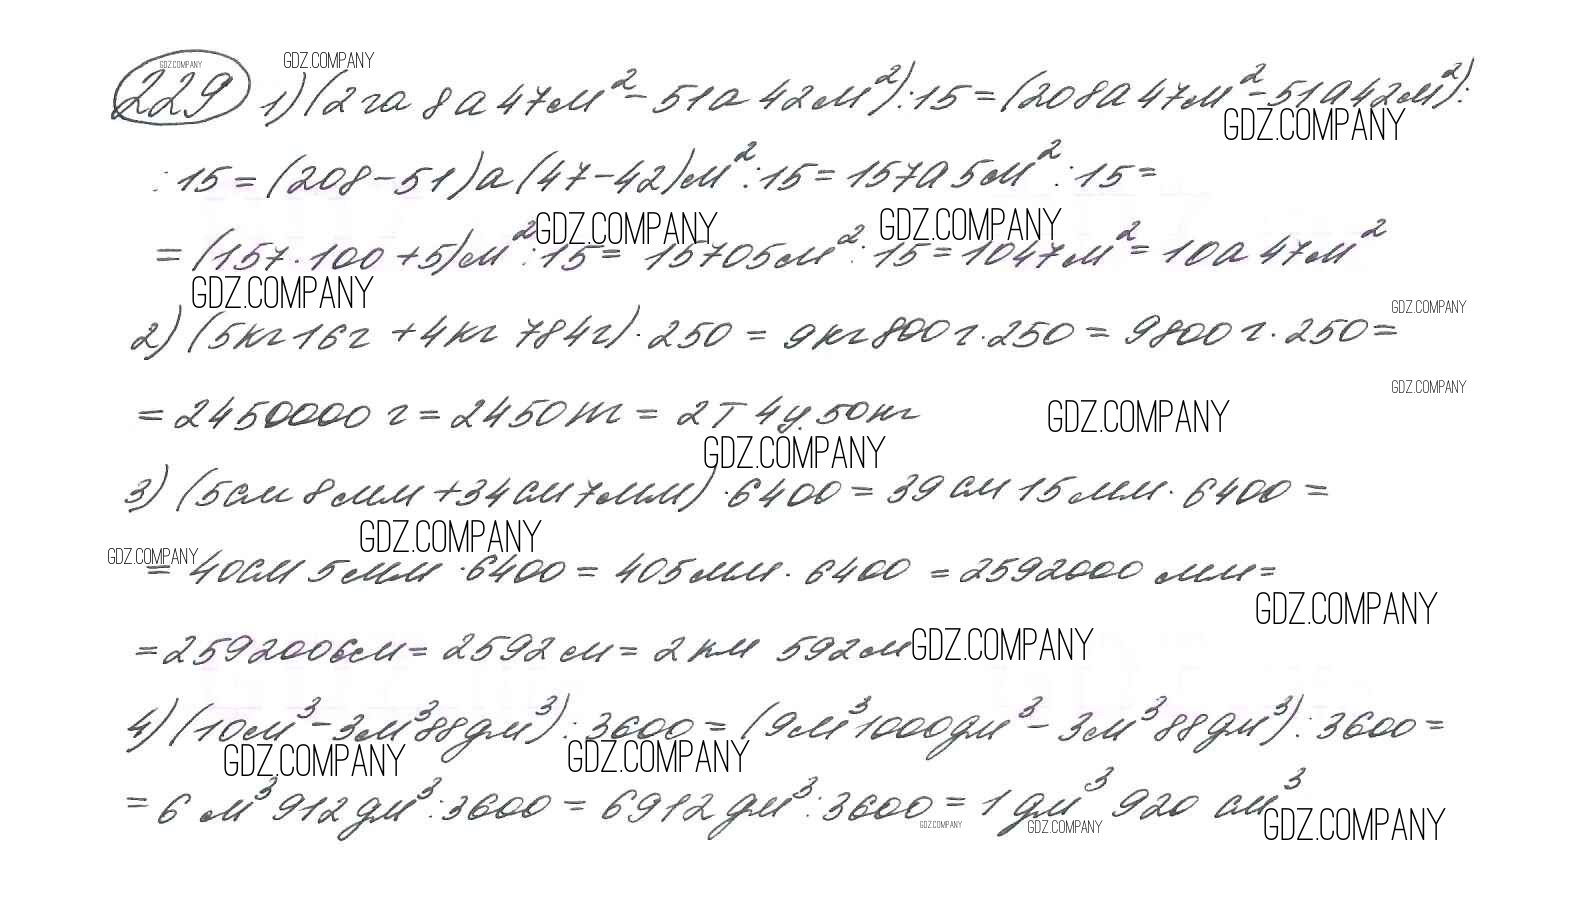 GDZ.COMPANY GDZ.COMPANY
229 1) (2 га 8 а 47 м² - 51 а 42 м²) : 15 = (208 а 47 м² - 51 а 42 м²) :
GDZ.COMPANY
: 15 = (208 - 51) а (47 - 42) м² : 15 = 157 а 5 м² : 15 =
GDZ.COMPANY GDZ.COMPANY
= (157 · 100 + 5) м² : 15 = 15705 м² : 15 = 1047 м² = 10 а 47 м²
GDZ.COMPANY GDZ.COMPANY
2) (5 кг 16 г + 4 кг 784 г) · 250 = 9 кг 800 г · 250 = 9800 г · 250 =
GDZ.COMPANY
= 2450000 г = 2450 кг = 2 т 4 ц 50 кг GDZ.COMPANY
GDZ.COMPANY
3) (5 см 8 мм + 34 см 7 мм) · 6400 = 39 см 15 мм · 6400 =
GDZ.COMPANY GDZ.COMPANY
= 40 см 5 мм · 6400 = 405 мм · 6400 = 2592000 мм =
GDZ.COMPANY
= 259200 см = 2592 м = 2 км 592 м GDZ.COMPANY
4) (10 м³ - 3 м³ 88 дм³) : 3600 = (9 м³ 1000 дм³ - 3 м³ 88 дм³) : 3600 =
GDZ.COMPANY GDZ.COMPANY
= 6 м³ 912 дм³ : 3600 = 6912 дм³ : 3600 = 1 дм³ 920 см³
GDZ.COMPANY GDZ.COMPANY GDZ.COMPANY